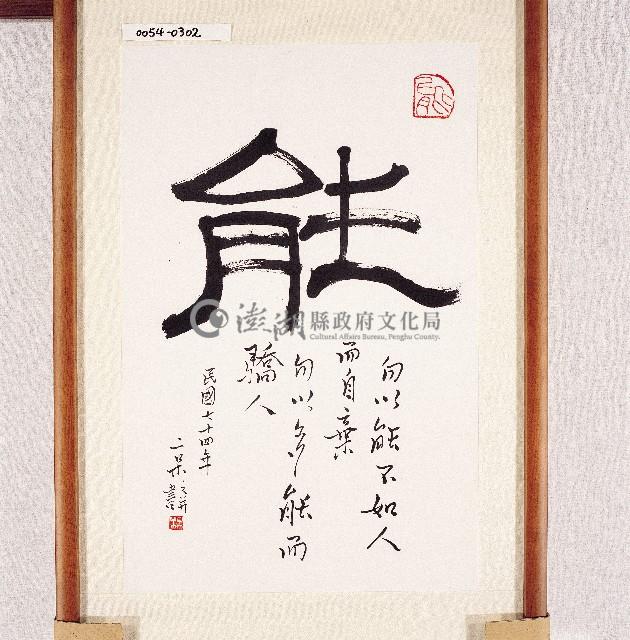 0054-0302
能
勿以能不如人
而自棄
勿以多能而
驕人
民國七十四年
二呆
書
澎湖縣政府文化局
Cultural Affairs Bureau, Penghu County.